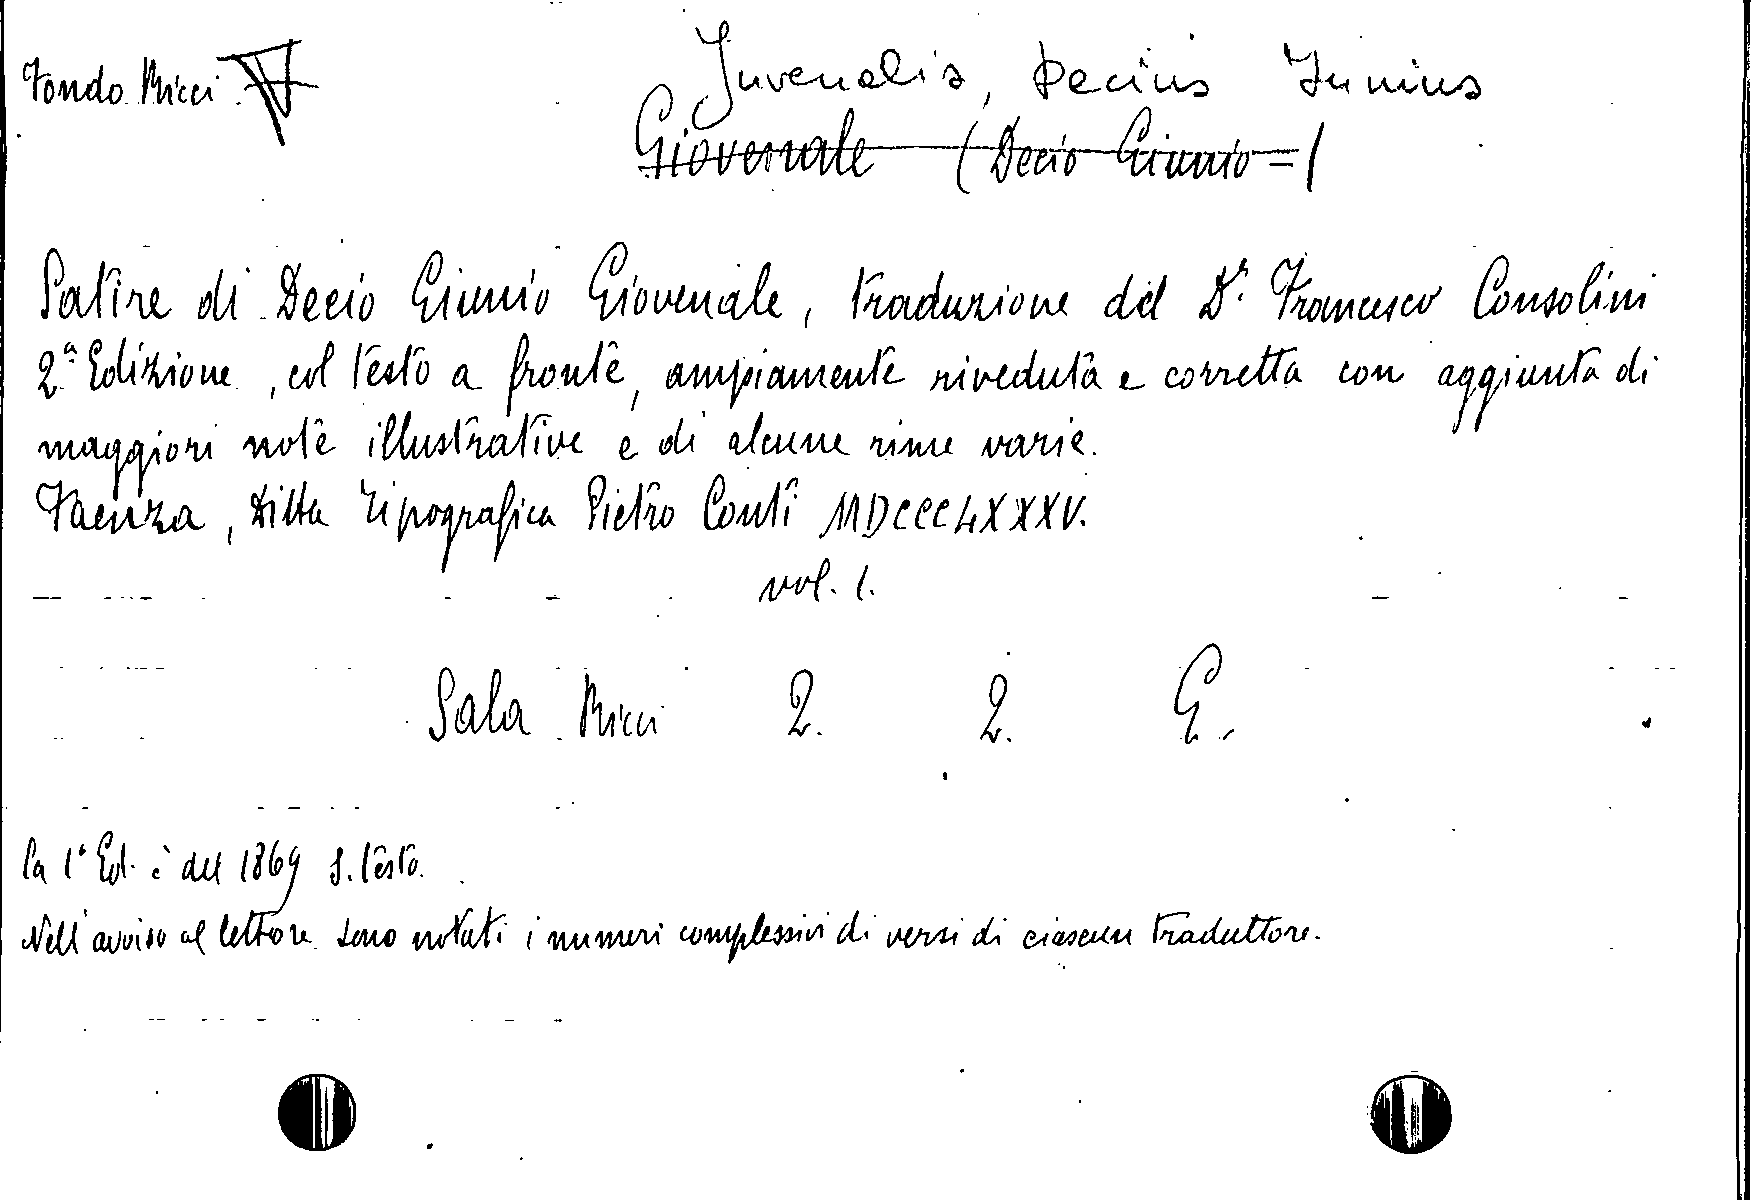 Fondo Ricci
Juvenalis, Decius Junius
Giovenale (Decio Giunio =)
Satire di Decio Giunio Giovenale, traduzione del Dr. Francesco Consolini
2ª Edizione, col testo a fronte, ampiamente riveduta e corretta con aggiunta di
maggiori note illustrative e di alcune rime varie.
Faenza, Ditta Tipografica Pietro Conti MDCCCLXXXV.
vol. 1.
Sala Ricci 2. 2. G.
La 1ª Ed. è del 1869 s. testo.
Nell'avviso al lettore sono notati i numeri complessivi di versi di ciascun traduttore.